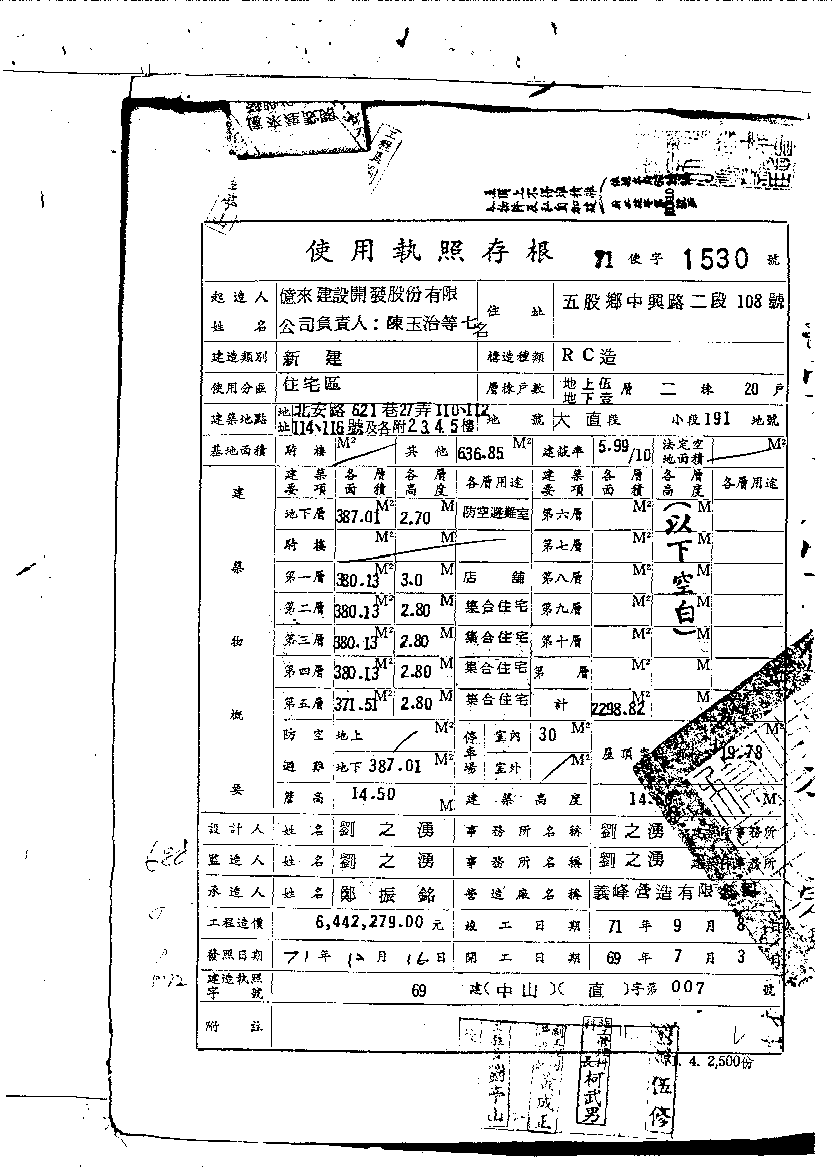 使用執照存根 71 使字 1530 號
起造人姓名 億來建設開發股份有限公司負責人：陳玉治等七名 住址 五股鄉中興路二段108號
建造類別 新建 構造種類 RC造
使用分區 住宅區 層棟戶數 地上伍地下壹層 二棟 20戶
建築地點 地址 北安路621巷27弄110、112、114、116號及各附2345樓 地號 大直段 小段191地號
基地面積 騎樓 M² 其他 636.85 M² 建蔽率 5.99/10 法定空地面積 M²
建築物概要 建築要項 各層面積 各層高度 各層用途 建築要項 各層面積 各層高度 各層用途
地下層 387.01 M² 2.70 M 防空避難室 第六層 M² M (以下空白)
騎樓 M² M 第七層 M² M
第一層 380.13 M² 3.0 M 店舖 第八層 M² M
第二層 380.13 M² 2.80 M 集合住宅 第九層 M² M
第三層 380.13 M² 2.80 M 集合住宅 第十層 M² M
第四層 380.13 M² 2.80 M 集合住宅 第 層 M² M
第五層 371.51 M² 2.80 M 集合住宅 計 2298.82 M² M
防空 地上 M² 停車場 室內 30 M² 屋頂 19.78 M²
避難 地下 387.01 M² 室外 M²
簷高 14.50 M 建築高度 14. M
設計人 姓名 劉之湧 事務所名稱 劉之湧 事務所
監造人 姓名 劉之湧 事務所名稱 劉之湧 事務所
承造人 姓名 鄭振銘 營造廠名稱 義峰營造有限
工程造價 6,442,279.00元 竣工日期 71年9月8日
發照日期 71年12月16日 開工日期 69年7月3日
建造執照字號 69 建(中山)(直)字第007號
附註
4. 2,500份
長柯武男
伍修